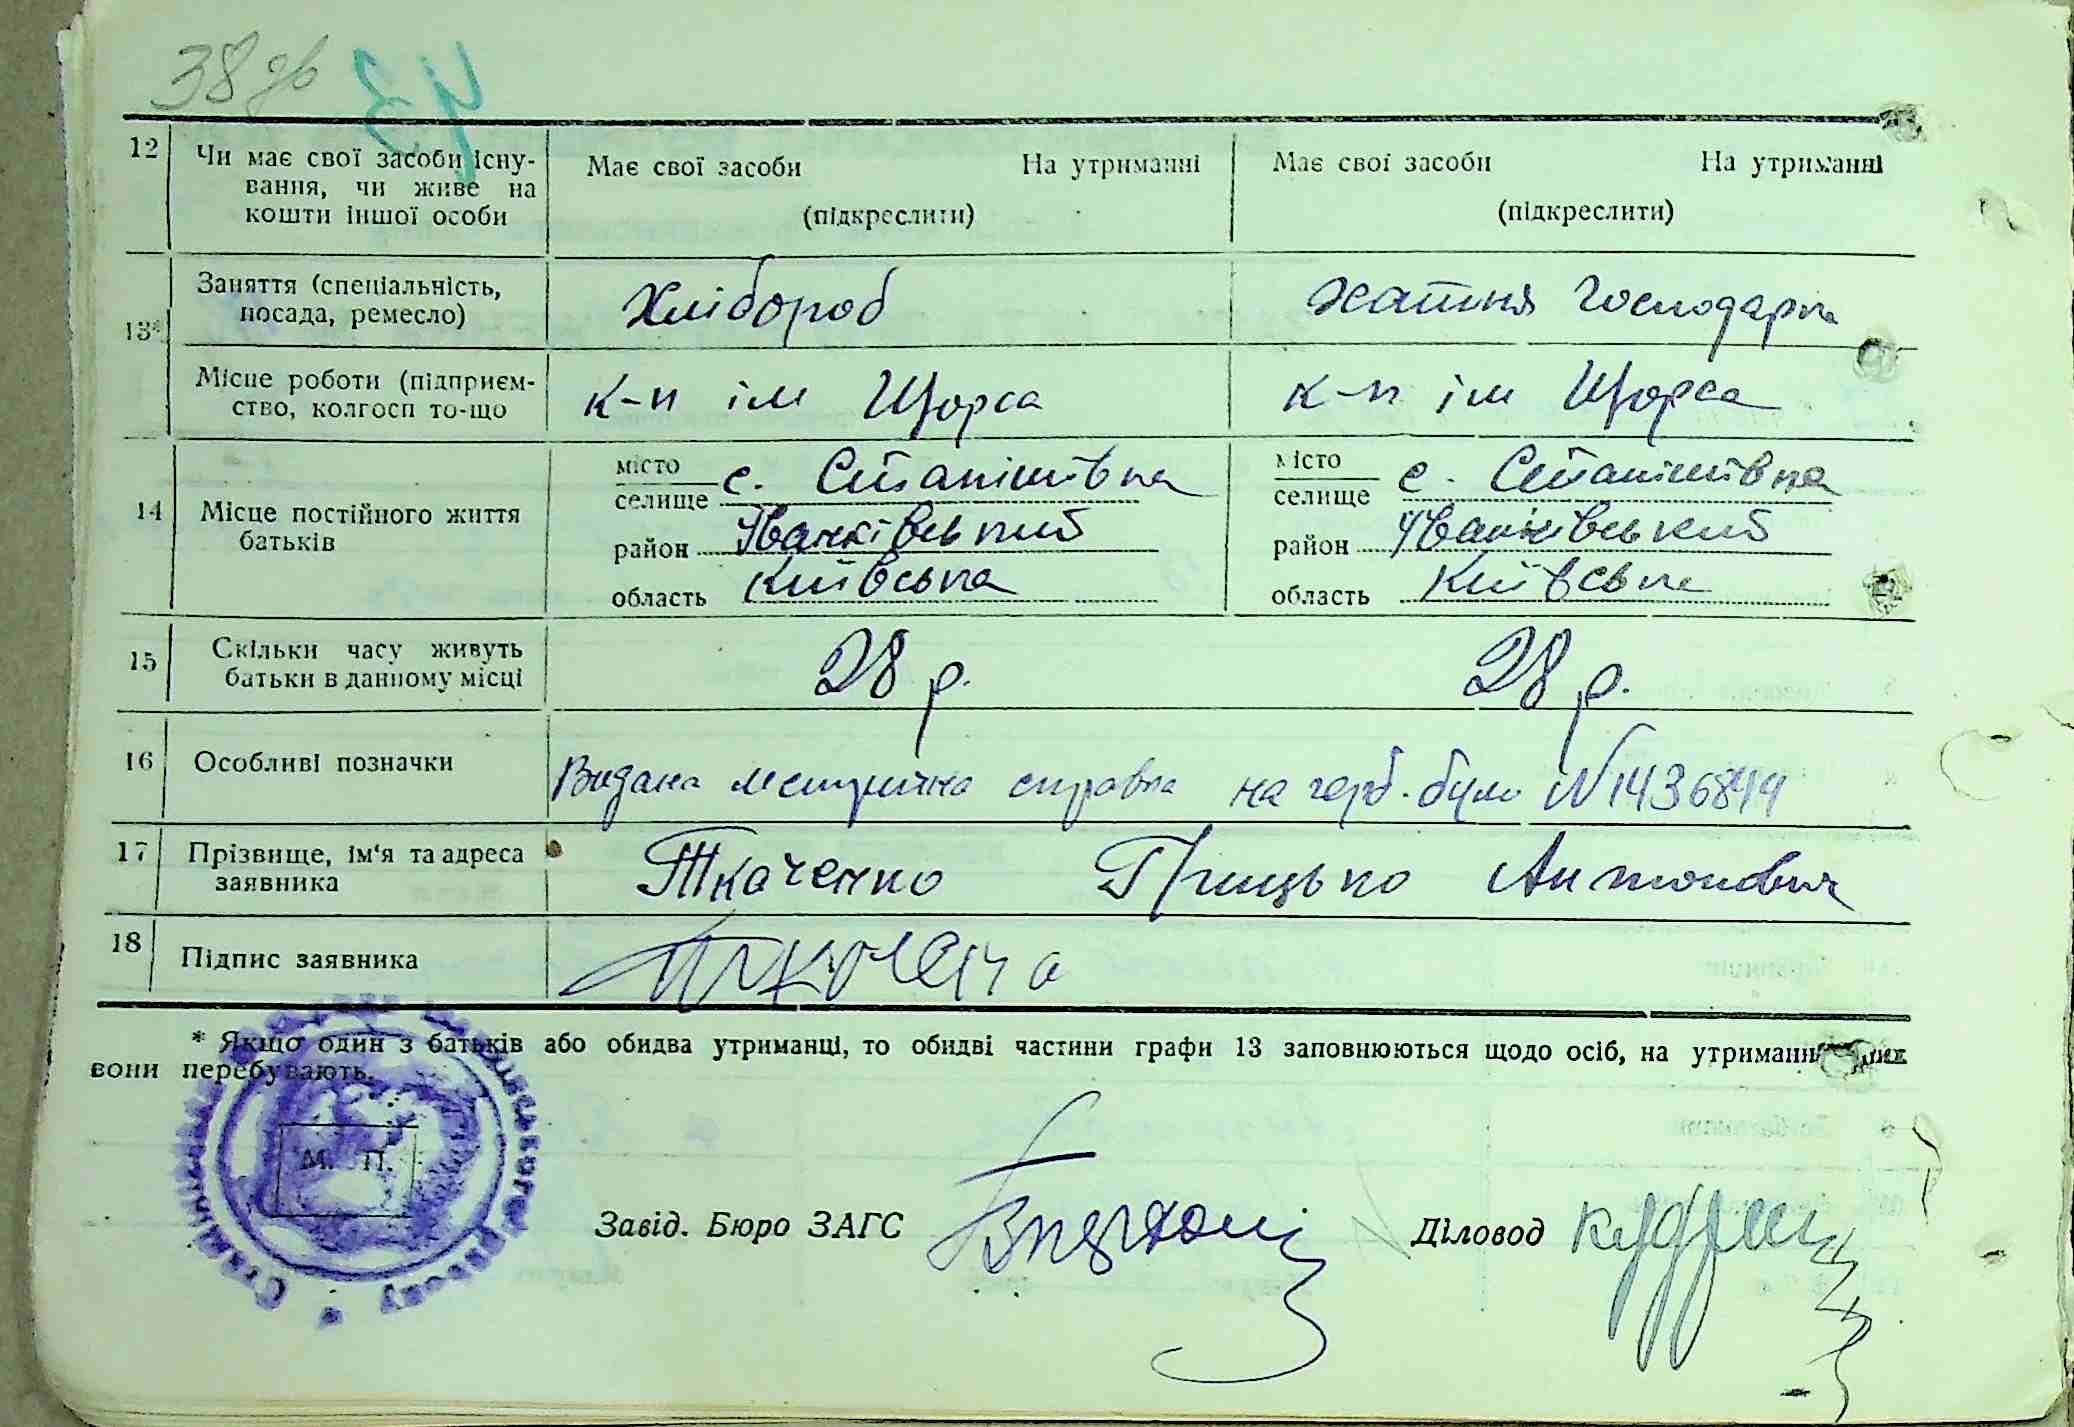 38 зв
12 Чи має свої засоби існу-
вання, чи живе на
кошти іншої особи
Має свої засоби На утриманні
(підкреслити)
Має свої засоби На утриманні
(підкреслити)
13*
Заняття (спеціальність,
посада, ремесло)
Хлібороб
хатня господарка
Місце роботи (підприєм-
ство, колгосп то-що
к-п ім Щорса
к-п ім Щорса
14 Місце постійного життя
батьків
місто
селище с. Станішівка
район Іванківський
область Київська
місто
селище с. Станішівка
район Іванківський
область Київська
15 Скільки часу живуть
батьки в данному місці
28 р.
28 р.
16 Особливі позначки
Видана метрична справка на герб. бум N 1436844
17 Прізвище, ім'я та адреса
заявника
Ткаченко Грицько Антонович
18 Підпис заявника
* Якщо один з батьків або обидва утриманці, то обидві частини графи 13 заповнюються щодо осіб, на утриманні яких
вони перебувають.
М. П.
Завід. Бюро ЗАГС
Діловод